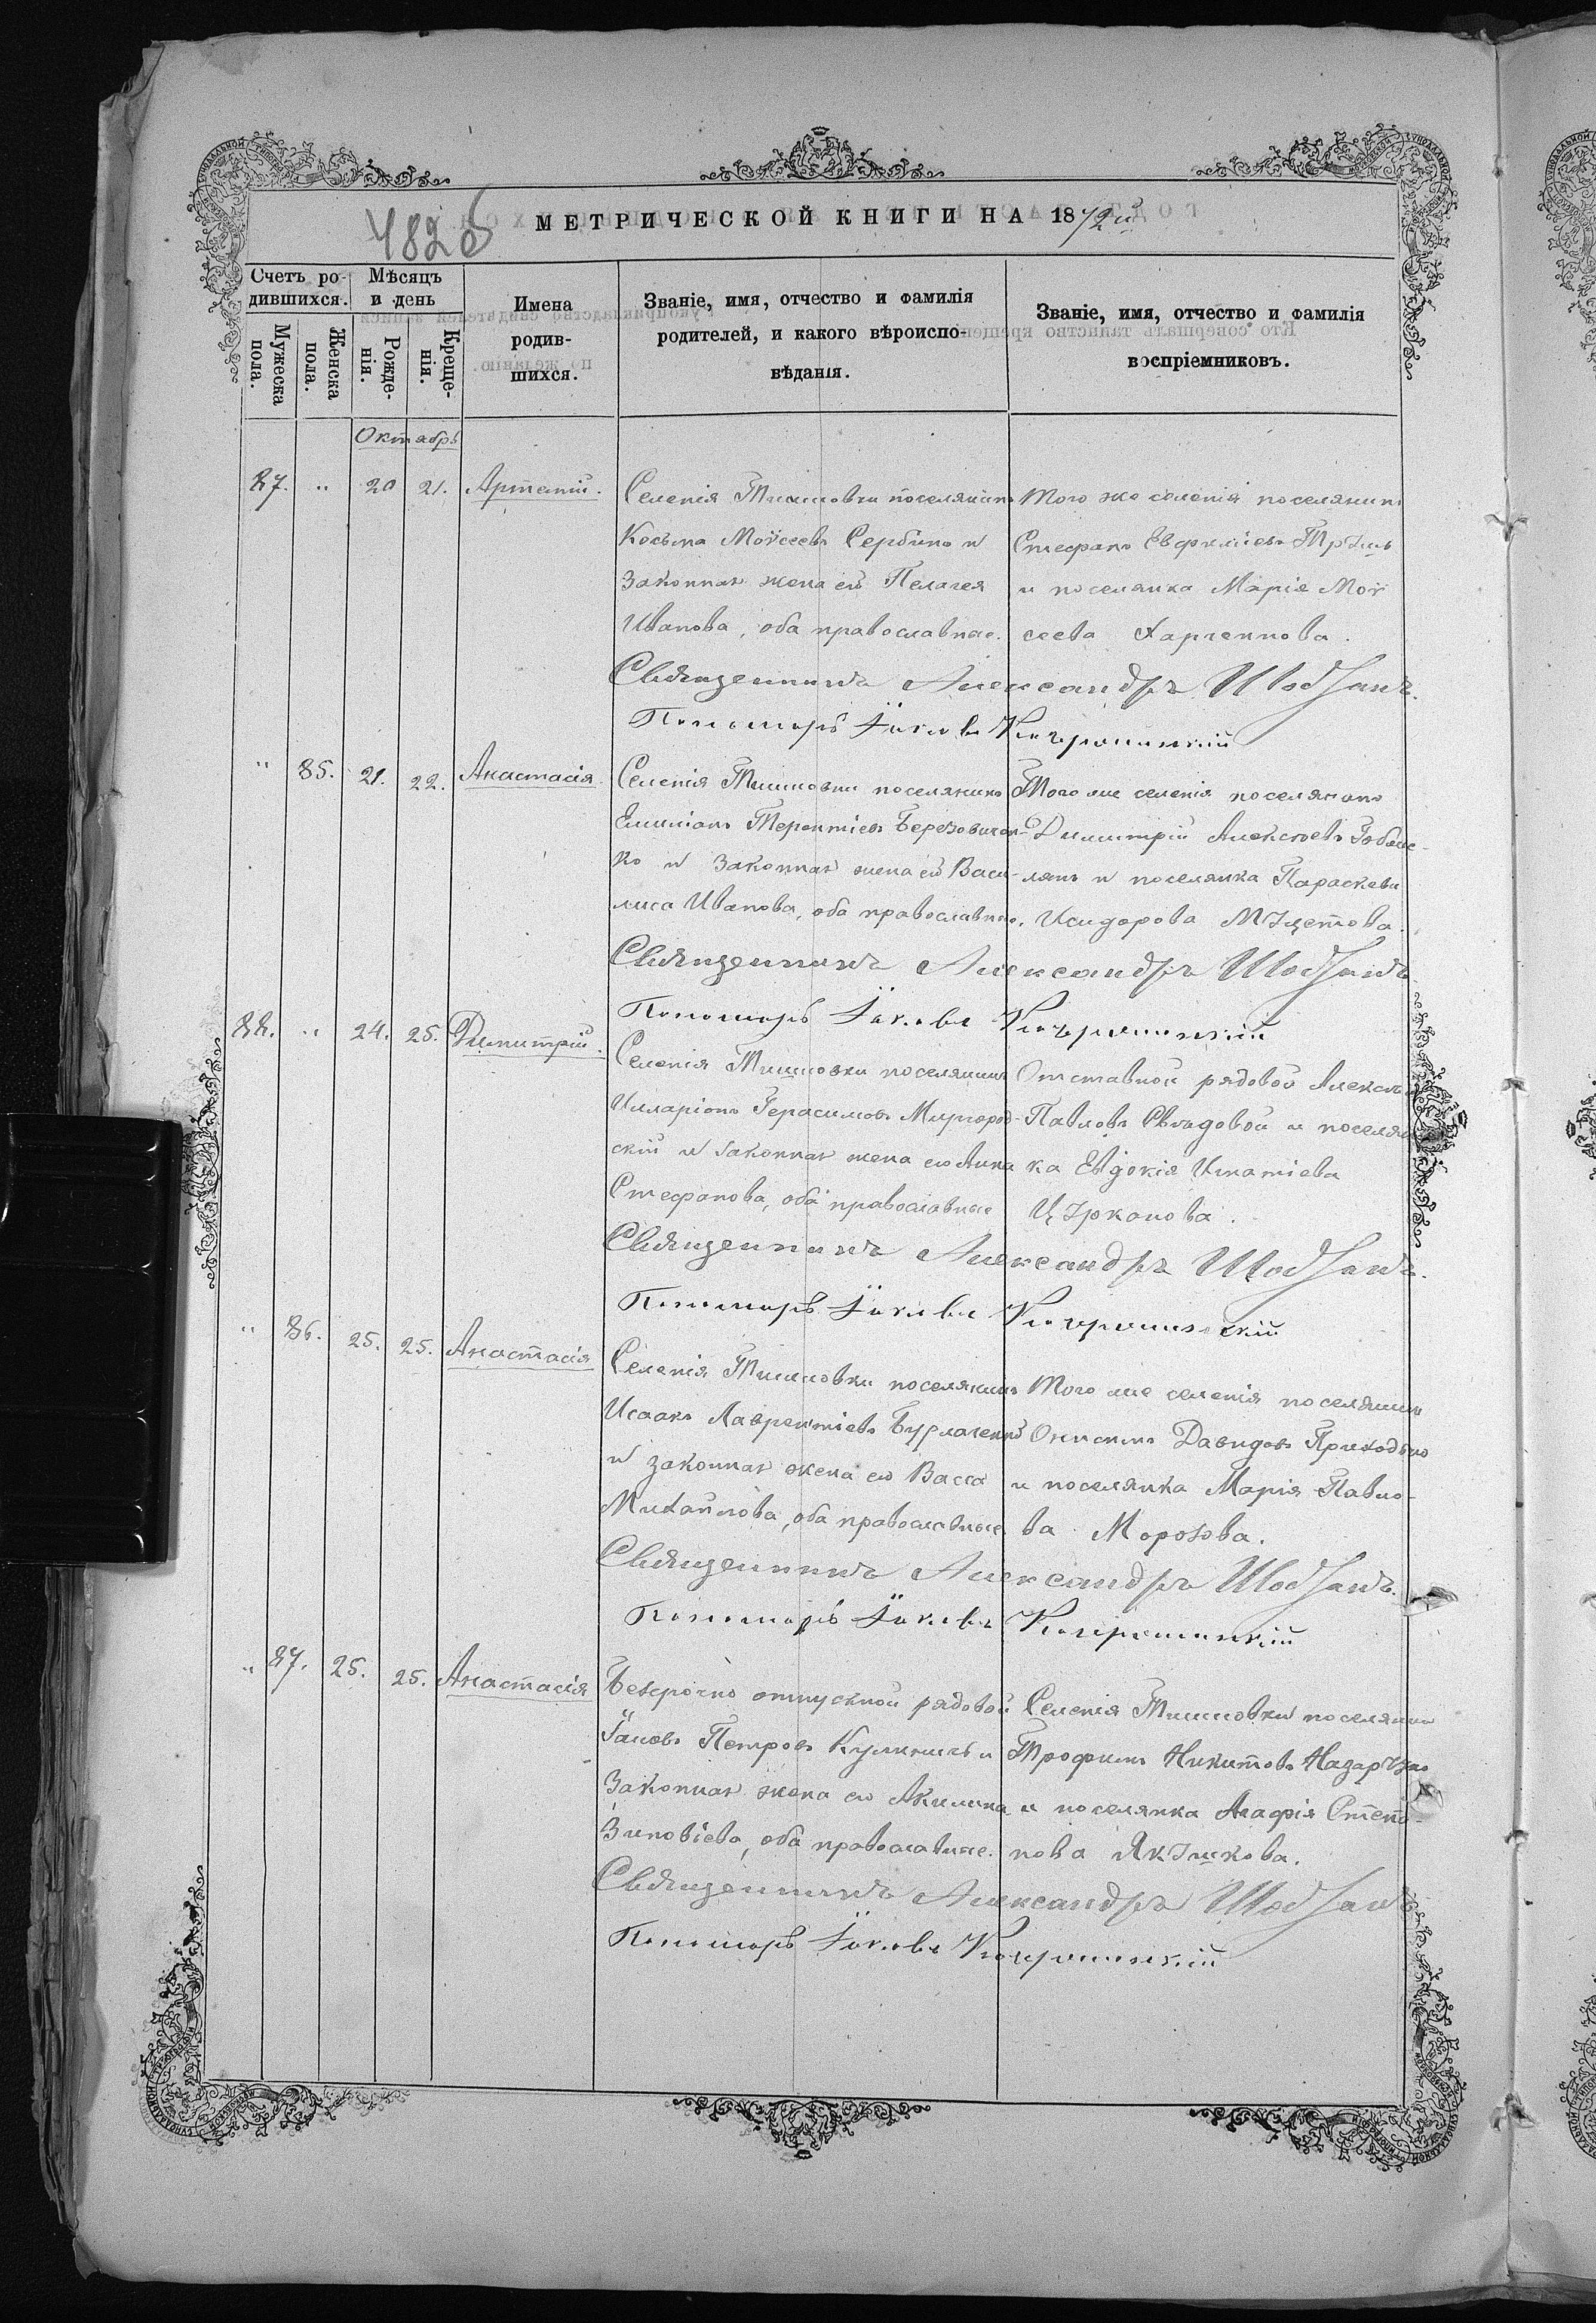 482 об
МЕТРИЧЕСКОЙ КНИГИ НА 1872й
Счетъ ро-
дившихся.
Мѣсяцъ
и день
Мужеска
пола.
Женска
пола.
Рожде-
нія.
Креще-
нія.
Имена
родив-
шихся.
Званіе, имя, отчество и фамилія
родителей, и какого вѣроиспо-
вѣданія.
Званіе, имя, отчество и фамилія
воспріемниковъ.
Октябрь
87. " 20 21. Артемій.
Селенія Тимшовки поселянинъ
Косьма Моѵсеевъ Сербинъ и
Законная жена его Пелагея
Иванова, оба православные.
Того же селенія поселянинъ
Стефанъ Евфиміевъ
и поселянка Марія Моѵ
сеева Харченкова.
Священникъ Александръ
Пономарь Іаковъ
" 85. 21. 22. Анастасія
Селенія Тимшовки поселянинъ
Емиліанъ Терентіевъ Березовичен-
ко и законная жена его Васи-
лиса Иванова, оба православные.
Того же селенія поселянинъ
Димитрій Алексѣевъ
лянъ и поселянка Параскева
Исидорова
Священникъ Александръ
Пономарь Іаковъ
88. " 24. 25. Димитрій.
Селенія Тимшовки поселянинъ
Илларіонъ Герасимовъ Миргород-
скій и законная жена его Анна
Стефанова, оба православные
Отставной рядовой Алексѣй
Павловъ и поселян
ка Евдокія Игнатіева
Священникъ Александръ
Пономарь Іаковъ
" 86. 25. 25. Анастасія
Селенія Тимшовки поселянинъ
Исаакъ Лаврентіевъ Бурлаченко
и законная жена его Васса
Михайлова, оба православные
Того же селенія поселянинъ
Онисимъ Давидовъ Приходько
и поселянка Марія Павло-
ва Морозова.
Священникъ Александръ
Пономарь Іаковъ
" 87. 25. 25. Анастасія
Безсрочно отпускной рядовой
Іаковъ Петровъ и
Законная жена его Акилина
Зиновіева, оба православные.
Селенія Тимшовки поселянинъ
Трофимъ Никитовъ
и поселянка Агафія Степа-
нова
Священникъ Александръ
Пономарь Іаковъ